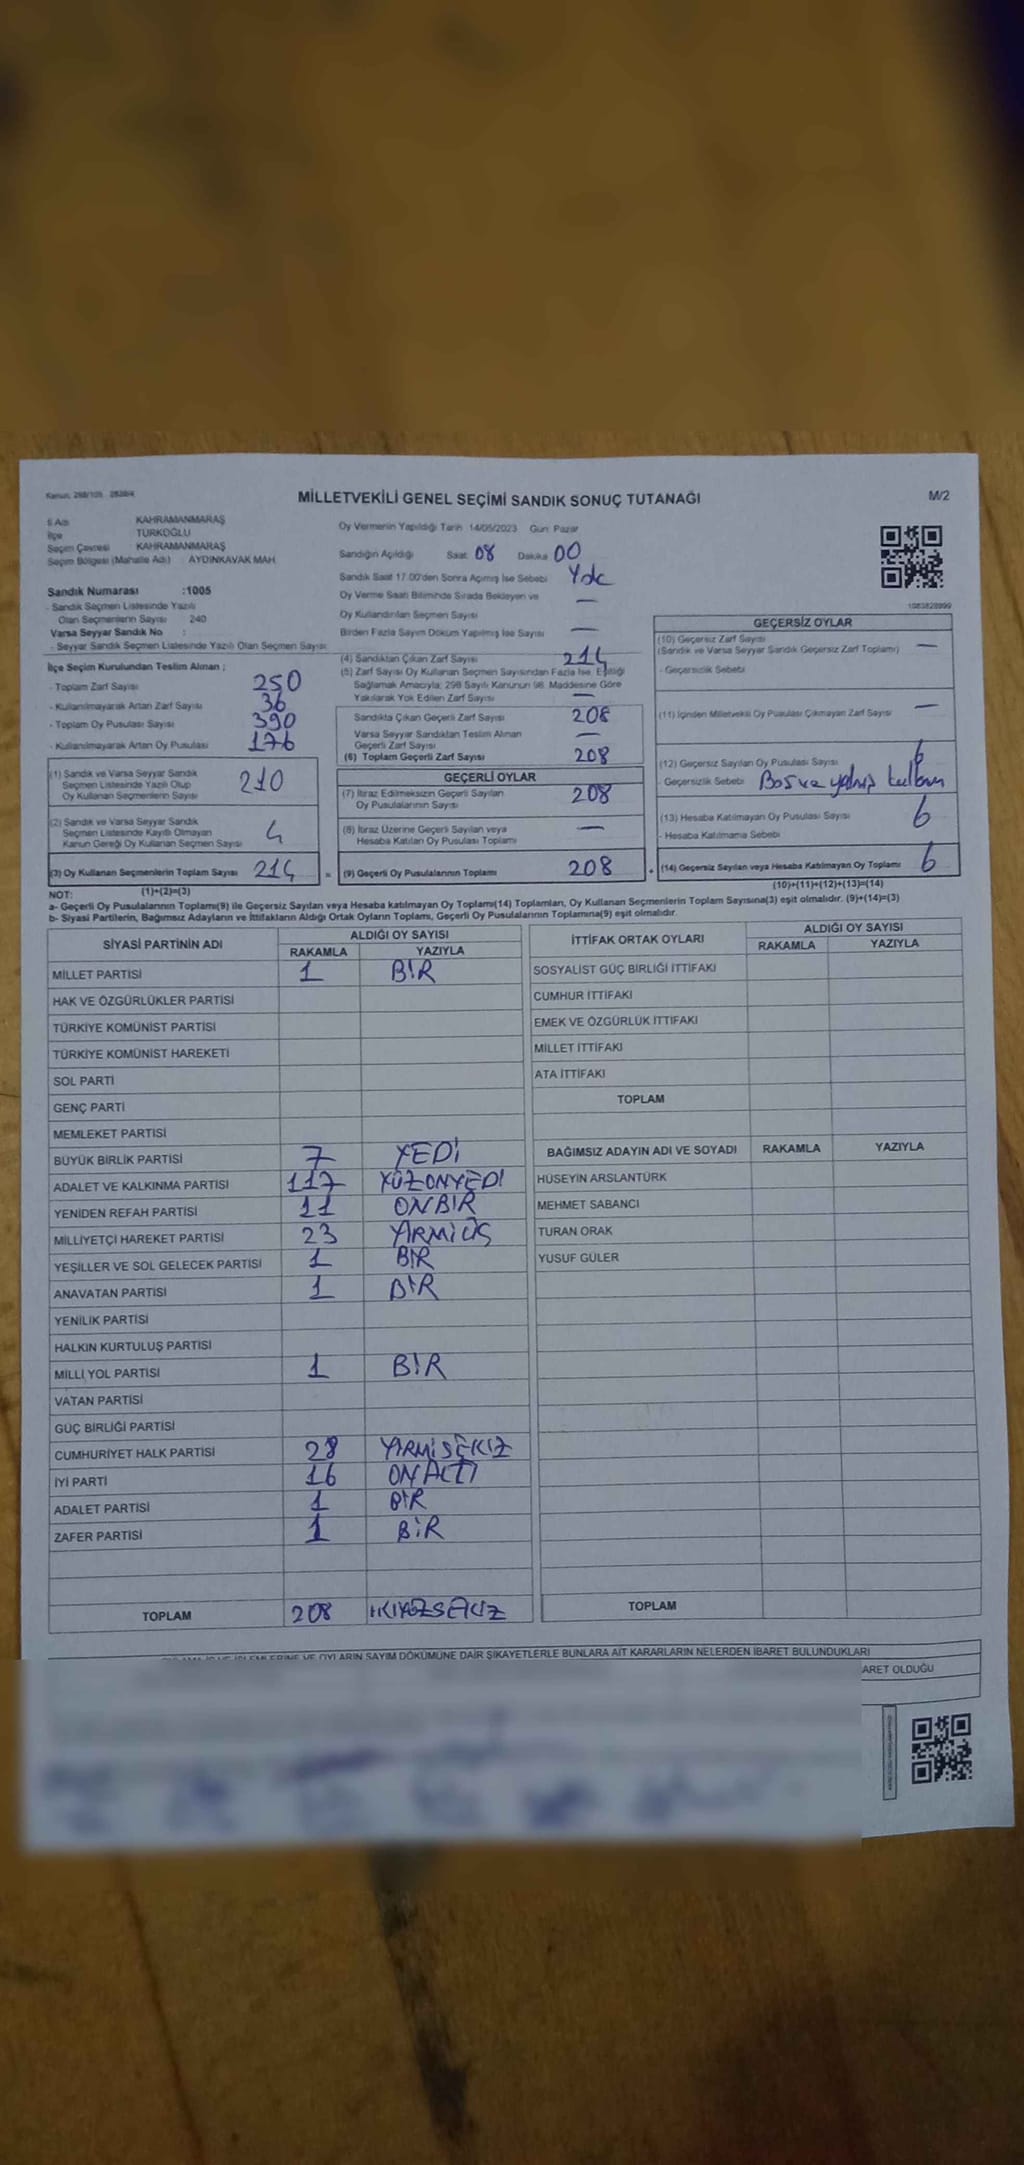 Kanun: 298/105 2839/4
MİLLETVEKİLİ GENEL SEÇİMİ SANDIK SONUÇ TUTANAĞI
M/2
İl Adı KAHRAMANMARAŞ
İlçe TÜRKOĞLU
Seçim Çevresi KAHRAMANMARAŞ
Seçim Bölgesi (Mahalle Adı) AYDINKAVAK MAH
Sandık Numarası :1005
- Sandık Seçmen Listesinde Yazılı
Olan Seçmenlerin Sayısı 240
Varsa Seyyar Sandık No :
- Seyyar Sandık Seçmen Listesinde Yazılı Olan Seçmen Sayısı
İlçe Seçim Kurulundan Teslim Alınan ;
- Toplam Zarf Sayısı 250
- Kullanılmayarak Artan Zarf Sayısı 36
- Toplam Oy Pusulası Sayısı 390
- Kullanılmayarak Artan Oy Pusulası 176
(1) Sandık ve Varsa Seyyar Sandık
Seçmen Listesinde Yazılı Olup
Oy Kullanan Seçmenlerin Sayısı 210
(2) Sandık ve Varsa Seyyar Sandık
Seçmen Listesinde Kayıtlı Olmayan
Kanun Gereği Oy Kullanan Seçmen Sayısı 4
(3) Oy Kullanan Seçmenlerin Toplam Sayısı 214 =
(1)+(2)=(3)
Oy Vermenin Yapıldığı Tarih 14/05/2023 Gün: Pazar
Sandığın Açıldığı Saat 08 Dakika 00
Sandık Saat 17.00'den Sonra Açımış İse Sebebi Yok
Oy Verme Saati Bitiminde Sırada Bekleyen ve
Oy Kullandırılan Seçmen Sayısı —
Birden Fazla Sayım Döküm Yapılmış İse Sayısı —
(4) Sandıktan Çıkan Zarf Sayısı 214
(5) Zarf Sayısı Oy Kullanan Seçmen Sayısından Fazla İse, Eşitliği
Sağlamak Amacıyla; 298 Sayılı Kanunun 98. Maddesine Göre
Yakılarak Yok Edilen Zarf Sayısı —
Sandıkta Çıkan Geçerli Zarf Sayısı 208
Varsa Seyyar Sandıktan Teslim Alınan
Geçerli Zarf Sayısı —
(6) Toplam Geçerli Zarf Sayısı 208
GEÇERLİ OYLAR
(7) İtiraz Edilmeksizin Geçerli Sayılan
Oy Pusulalarının Sayısı 208
(8) İtiraz Üzerine Geçerli Sayılan veya
Hesaba Katılan Oy Pusulası Toplamı —
(9) Geçerli Oy Pusulalarının Toplamı 208 +
1083828999
GEÇERSİZ OYLAR
(10) Geçersiz Zarf Sayısı
(Sandık ve Varsa Seyyar Sandık Geçersiz Zarf Toplamı) —
- Geçersizlik Sebebi
(11) İçinden Milletvekili Oy Pusulası Çıkmayan Zarf Sayısı —
(12) Geçersiz Sayılan Oy Pusulası Sayısı 6
- Geçersizlik Sebebi Boş ve yalnış kullanı
(13) Hesaba Katılmayan Oy Pusulası Sayısı 6
- Hesaba Katılmama Sebebi
(14) Geçersiz Sayılan veya Hesaba Katılmayan Oy Toplamı 6
(10)+(11)+(12)+(13)=(14)
NOT:
a- Geçerli Oy Pusulalarının Toplamı(9) ile Geçersiz Sayılan veya Hesaba katılmayan Oy Toplamı(14) Toplamları, Oy Kullanan Seçmenlerin Toplam Sayısına(3) eşit olmalıdır. (9)+(14)=(3)
b- Siyasi Partilerin, Bağımsız Adayların ve İttifakların Aldığı Ortak Oyların Toplamı, Geçerli Oy Pusulalarının Toplamına(9) eşit olmalıdır.
SİYASİ PARTİNİN ADI ALDIĞI OY SAYISI
RAKAMLA YAZIYLA
MİLLET PARTİSİ 1 BİR
HAK VE ÖZGÜRLÜKLER PARTİSİ
TÜRKİYE KOMÜNİST PARTİSİ
TÜRKİYE KOMÜNİST HAREKETİ
SOL PARTİ
GENÇ PARTİ
MEMLEKET PARTİSİ
BÜYÜK BİRLİK PARTİSİ 7 YEDİ
ADALET VE KALKINMA PARTİSİ 117 YÜZONYEDİ
YENİDEN REFAH PARTİSİ 11 ONBİR
MİLLİYETÇİ HAREKET PARTİSİ 23 YİRMİÜÇ
YEŞİLLER VE SOL GELECEK PARTİSİ 1 BİR
ANAVATAN PARTİSİ 1 BİR
YENİLİK PARTİSİ
HALKIN KURTULUŞ PARTİSİ
MİLLİ YOL PARTİSİ 1 BİR
VATAN PARTİSİ
GÜÇ BİRLİĞİ PARTİSİ
CUMHURİYET HALK PARTİSİ 28 YİRMİSEKİZ
İYİ PARTİ 16 ONALTI
ADALET PARTİSİ 1 BİR
ZAFER PARTİSİ 1 BİR
TOPLAM 208 İKİYÜZSEKİZ
İTTİFAK ORTAK OYLARI ALDIĞI OY SAYISI
RAKAMLA YAZIYLA
SOSYALİST GÜÇ BİRLİĞİ İTTİFAKI
CUMHUR İTTİFAKI
EMEK VE ÖZGÜRLÜK İTTİFAKI
MİLLET İTTİFAKI
ATA İTTİFAKI
TOPLAM
BAĞIMSIZ ADAYIN ADI VE SOYADI RAKAMLA YAZIYLA
HÜSEYİN ARSLANTÜRK
MEHMET SABANCI
TURAN ORAK
YUSUF GÜLER
TOPLAM
VE OYLARIN SAYIM DÖKÜMÜNE DAİR ŞİKAYETLERLE BUNLARA AİT KARARLARIN NELERDEN İBARET BULUNDUKLARI
ARET OLDUĞU